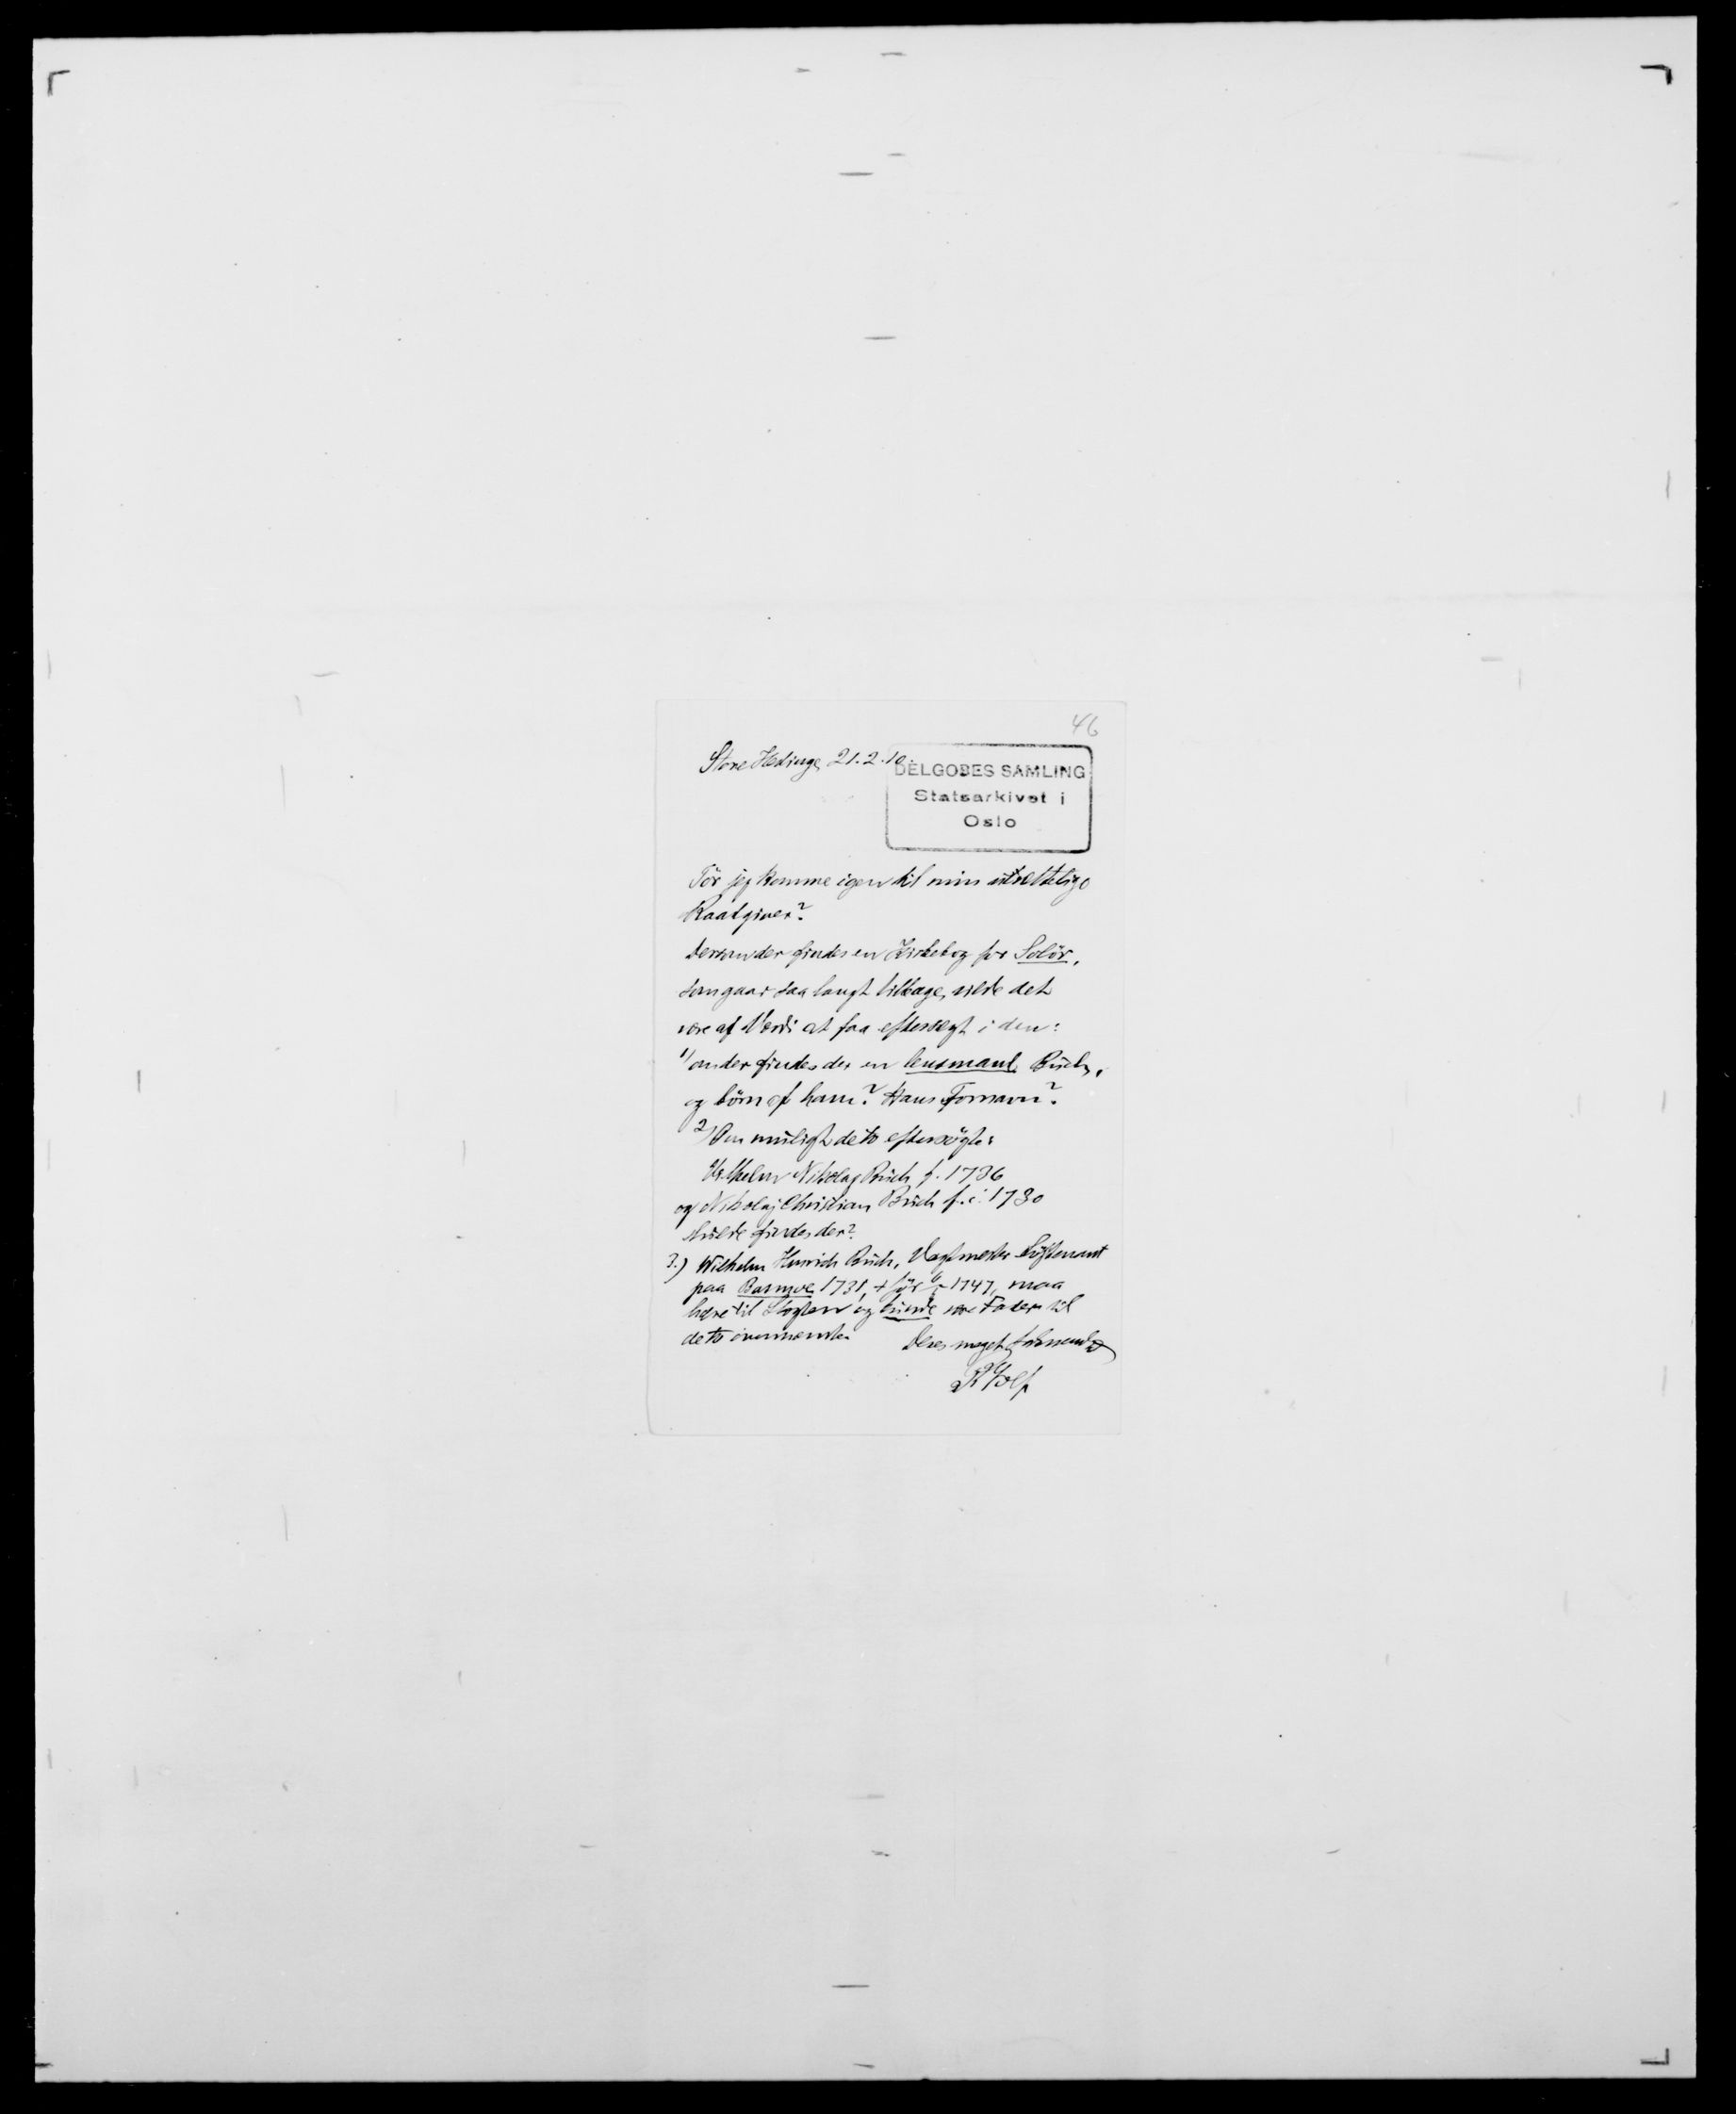 46
Store Hedinge 21.2.10.
DELGOBES SAMLING
Statsarkivet i
Oslo
Tör jeg komme igen til min utrættelige
Raadgiver?
Dersom der findes en Kirkebog for Solör,
som gaar saa langt tilbage, vilde det
være af Værdi at faa eftersøgt i den:
1) om der findes der en lensmand Büch,
og börn af ham? Hans Fornavn?
2) Om muligt de to eftersögte:
Vilhelm Nikolaj Büch f. 1736
og Nikolaj Christian Büch f. c. 1730
skulde findes der?
3.) Wilhelm Hinrich Büch, Vagtmester Löjtenant
paa 1731, + för 1747, maa
høre til Slægten og kunde være Fader til
de to ovennævnte.
Deres meget